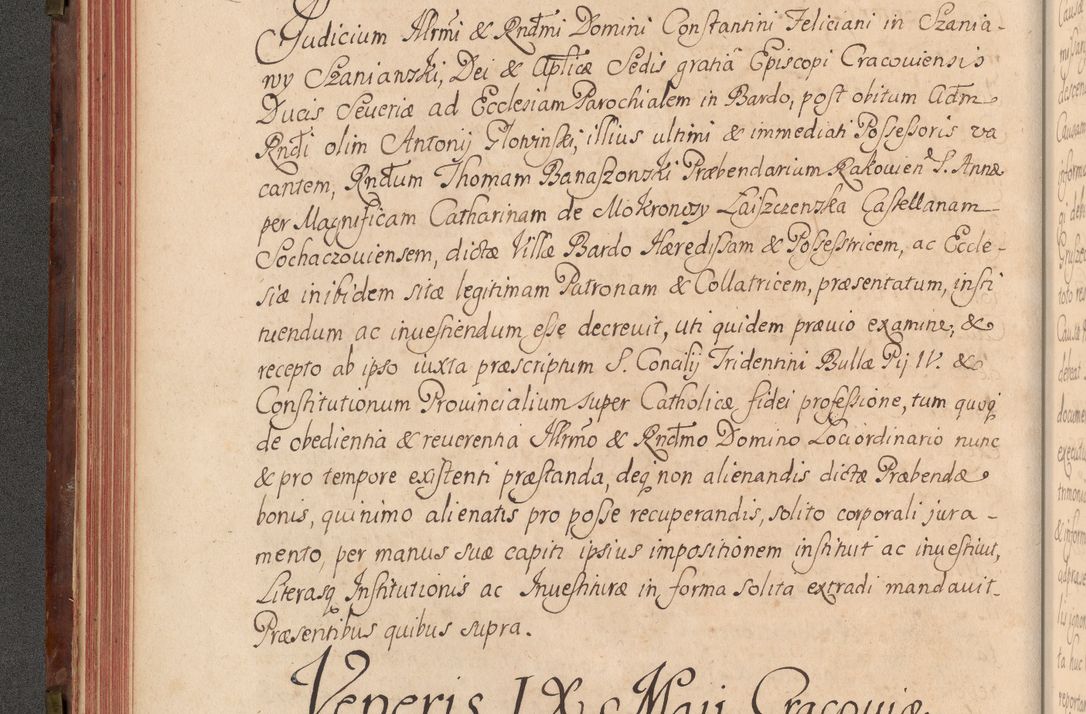 Judicium Illrmi & Rndmi Domini Constantini Feliciani in Szania-
wy Szanianski, Dei & Aplicæ Sedis gratiâ Episcopi Cracoviensis
Ducis Severiæ ad Ecclesiam Parochialem in Bardo, post obitum Adm
Rndi olim Antonij Glowinski, illius ultimi & immediati Possessoris va
cantem, Rndum Thomam Banaszonski Præbendarium Rakovien S. Annæ
per Magnificam Catharinam de Mokronosy Laiszczenska Castellanam
Sochaczoviensem, dictæ Villæ Bardo Hæredissam & Possestricem, ac Eccle-
siæ inibidem sitæ legitimam Patronam & Collatricem, præsentatum, insti
tuendum ac investiendum esse decrevit, uti quidem prævio examine, &
recepto ab ipso iuxta præscriptum S. Concilij Tridentini Bullæ Pij IV. &
Constitutionum Provincialium super Catholicæ fidei professione, tum quoq
de obedientia & reverentia Illrmo & Rndmo Domino Lociordinario nunc
& pro tempore existenti præstanda, deq non alienandis dictæ Præbendæ
bonis, quinimo alienatis pro posse recuperandis, solito corporali jura-
mento, per manus suæ capiti ipsius impositionem instituit ac investivit,
Literasq Institutionis ac Investituræ in forma solita extradi mandavit
Præsentibus quibus supra.
Veneris IX Maii Cracoviæ